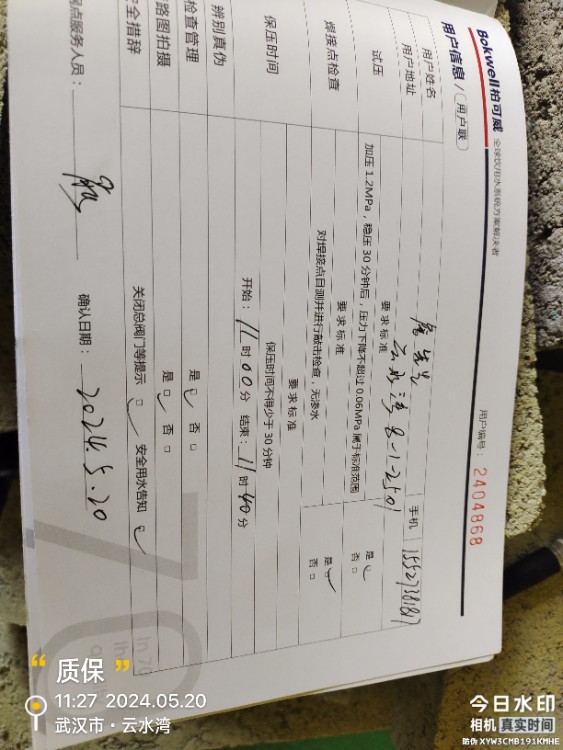 Bokwell柏可威 全球饮用水系统方案解决者
用户信息/用户联 用户编号：2404868
用户姓名 手机 15527381817
用户地址 云水湾 8-1-2501
试压 要求标准
加压1.2MPa，稳压30分钟后，压力下降不超过0.06MPa属于标准范围 是 否
焊接点检查 要求标准
对焊接点目测并进行敲击检查，无渗水 是 否
保压时间 要求标准
保压时间不得少于30分钟
开始：11时00分 结束：11时40分
辨别真伪 是 否
检查管理
路图拍摄 是 否
全措辞 关闭总阀门等提示 安全用水告知
点服务人员： 确认日期：2024.5.20
质保
11:27 2024.05.20
武汉市·云水湾
今日水印
相机 真实时间
防伪 XYW3CMB191KMHE